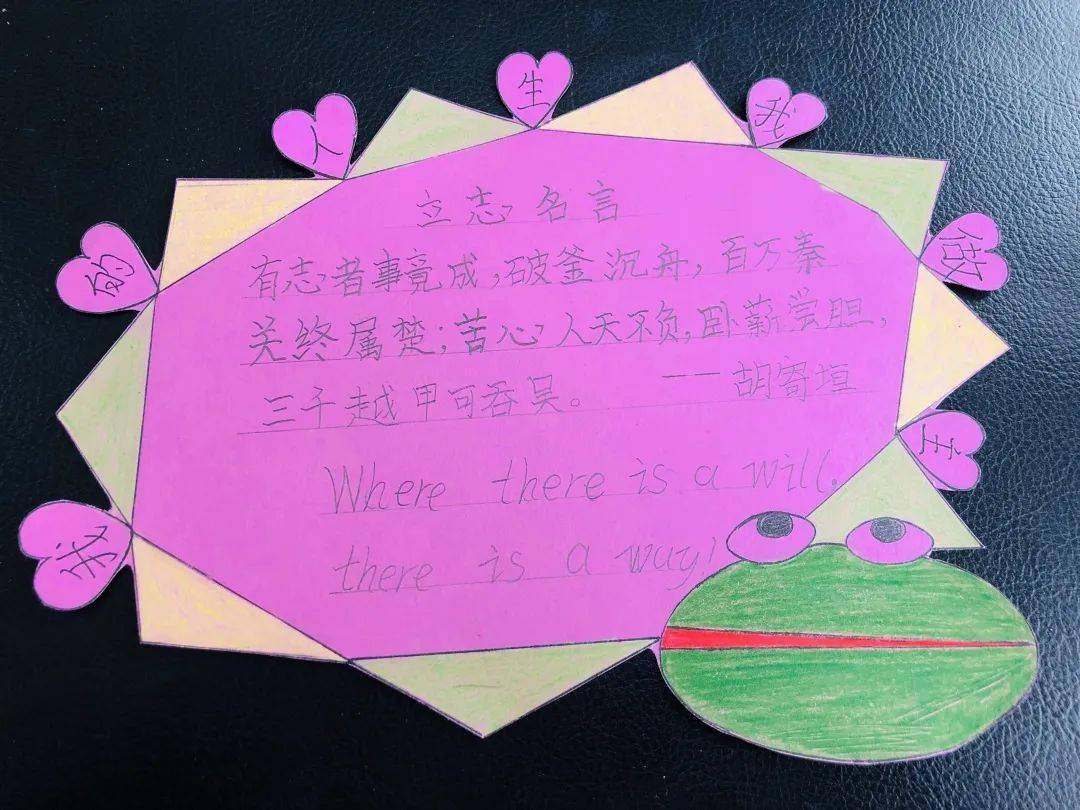 我的人生我做主
立志名言
有志者事竟成，破釜沉舟，百万秦
关终属楚；苦心人天不负，卧薪尝胆，
三千越甲可吞吴。 ——胡寄垣
Where there is a will.
there is a way!